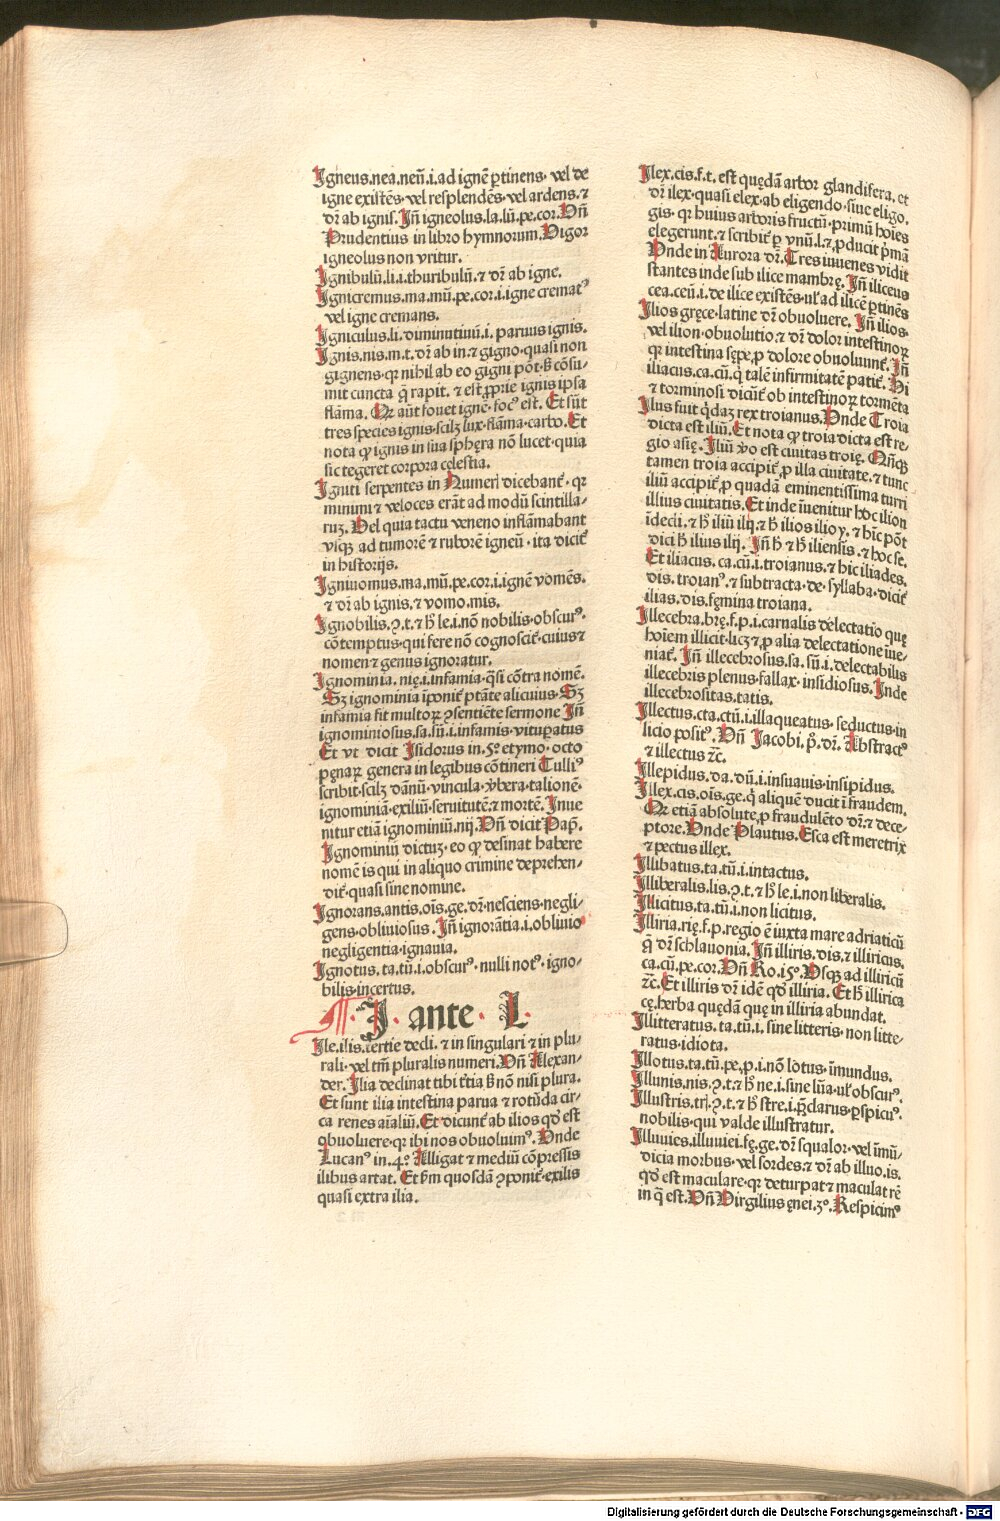 Igneus.nea.neū.i.ad ignē ꝑtinens· vel de
igne existēs· vel resplendēs· vel ardens.⁊
dr̄ ab ignis. Jn̄ igneolus.la.lū.pe.cor. Vn̄
Prudentius in libro hymnorum. Vigor
igneolus non vritur.
Ignibulū.li.i.thuribulū.⁊ dr̄ ab igne.
Ignicremus.ma.mū.pe.cor.i.igne crematꝰ
vel igne cremans.
Igniculus.li.diminutiuū.i. paruus ignis.
Ignis.nis.m.t. dr̄ ab in.⁊ gigno·quasi non
gignens·qꝛ nihil ab eo gigni pōt· s̄ cōsu-
mit cuncta q̄ rapit. ⁊ est ꝓprie ignis ipsa
flāma. Qꝛ aūt fouet ignē· focꝰ est. Et sūt
tres species ignis·scilꝫ lux·flāma·carbo. Et
nota ꝙ ignis in sua sphęra nō lucet·quia
sic tegeret corpora celestia.
Igniti serpentes in Numeri dicebant̄· qꝛ
minimi ⁊ veloces erāt ad modū scintilla-
rum. Vel quia tactu veneno inflāmabant
vsqꝫ ad tumorē ⁊ ruborē igneū· ita dicit̄
in historijs.
Igniuomus.ma.mū.pe.cor.i.ignē vomēs.
⁊ dr̄ ab ignis.⁊ vomo.mis.
Ignobilis.ꝯ.t.⁊ h̄ le.i.nō nobilis·obscurꝰ·
cōtemptus·qui fere nōn cognoscit̄·cuius⁊
nomen ⁊ genus ignoratur.
Ignominia.nię.i.infamia·q̄si cōtra nomē.
Sꝫ ignominia īponit̄ ptāte alicuius· Sꝫ
infamia fit multoꝝ ꝯsentiēte sermone Jn̄
ignominiosus.sa.sū.i.infamis·vituꝑatus
Et vt dicit Isidorus in.5º etymo· octo
pęnaꝝ genera in legibus cōtineri Tulliꝰ
scribit·scilꝫ dānū·vincula·v̄bera·talionē·
ignominiā·exiliū·seruitutē.⁊ mortē. Inue
nitur etiā ignominiū.nij. Vn̄ dicit Pap.
Ignominiū dictuꝫ·eo ꝙ desinat habere
nomē is qui in aliquo crimine deprehen-
dit̄·quasi sine nomine.
Ignorans.antis.oīs.ge.dr̄·nesciens·negli-
gens·obliuiosus. Jn̄ ignorātia.i.obliuio
negligentia·ignauia.
Ignotus.ta.tū.i.obscurꝰ· nulli notꝰ· igno-
bilis·incertus.
¶ · I · ante · L
Ile.ilis.tertie decli. ⁊ in singulari ⁊ in plu-
rali· vel tm̄ pluralis numeri. Vn̄ Alexan-
der. Ilia declinat tibi t̄tia s̄ nō nisi plura.
Et sunt ilia intestina parua ⁊ rotūda cir-
ca renes aīaliū. Et dicunt̄ ab ilios qd̄ est
ꝯbuoluere·qꝛ ibi nos obuoluimꝰ. Vnde
Lucanꝰ in.4º Alligat ⁊ mediū cōpressis
ilibus artat. Et s̄m quosdā ꝯponit̄·exilis
quasi extra ilia.
Ilex.cis.f.t. est quędā arbor glandifera, et
dr̄ ilex·quasi elex·ab eligendo·siue eligo.
gis· qꝛ huius arboris fructū·primū hoīes
elegerunt.⁊ scribit̄ ꝑ vnū.l.⁊ ꝓducit p̄mā
Vnde in Aurora dr̄. Tres iuuenes vidit
stantes inde sub ilice mambrę. Jn̄ iliceus
cea.ceū.i.de ilice existēs·ul̄ ad ilicē ꝑtinēs
Ilios gręce·latine dr̄ obuoluere. Jn̄ ilios·
vel ilion·obuolutio.⁊ dr̄ dolor intestinoꝝ
qꝛ intestina sępe ꝓ dolore obuoluunt̄. Jn̄
iliacus.ca.cū.q̄ talē infirmitatē patit̄. Hi
⁊ torminosi dicūt̄ ob intestinoꝝ tormēta
Ilus fuit q̄daꝫ rex troianus. Vnde Troia
dicta est iliū. Et nota ꝙ troia dicta est re-
gio asię. Iliū v̄o est ciuitas troię. Qn̄qꝫ
tamen troia accipit̄ ꝓ illa ciuitate.⁊ tunc
iliū accipit̄ ꝓ quadā eminentissima turri
illius ciuitatis. Et inde īuenitur hoc ilion
īdecli.⁊ h̄ iliū ilij.⁊ h̄ ilios ilioy. ⁊ hīc pōt
dici h̄ ilius ilij. Jn̄ h̄ ⁊ h̄ iliensis.⁊ hoc se.
Et iliacus. ca.cū.i.troianus.⁊ hic iliades.
dis. troianꝰ.⁊ subtracta·de·syllaba·dicit̄
ilias.dis.fęmina troiana.
Illecebra.brę.f.p.i.carnalis delectatio quę
hoīem illicit·licꝫ ⁊ ꝓ alia delectatione iue-
niat̄. Jn̄ illecebrosus.sa.sū.i.delectabilis
illecebris plenus·fallax· insidiosus. Inde
illecebrositas.tatis.
Illectus.cta.ctū.i.illaqueatus· seductus·in
licio positꝰ. Vn̄ Jacobi.p̄.dr̄. Abstractꝰ
⁊ illectus ⁊c̄.
Illepidus.da.dū.i.insuauis·insipidus.
Illex.cis.oīs.ge.q̄ aliquē ducit ī fraudem.
Qꝛ etiā absolute ꝓ fraudulēto dr̄.⁊ dece-
ptore. Vnde Plautus. Esca est meretrix
⁊ pectus illex.
Illibatus.ta.tū.i.intactus.
Illiberalis.lis.ꝯ.t.⁊ h̄ le.i.non liberalis.
Illicitus.ta.tū.i.non licitus.
Illiria.rię.f.p.regio ē iuxta mare adriaticū
q̄ dr̄ schlauonia. Jn̄ illiris.dis.⁊ illiricus.
ca.cū.pe.cor. Vn̄ Ro.15º. Vsqꝫ ad illiricū
⁊c̄. Et illiris dr̄ idē qd̄ illiria. Et h̄ illirica
cę.herba quędā quę in illiria abundat.
Illitteratus.ta.tū.i. sine litteris· non litte-
ratus·idiota.
Illotus.ta.tū.pe.ꝓ.i.nō lotus· īmundus.
Illunis.nis.ꝯ.t.⁊ h̄ ne.i.sine lūa·ul̄ obscurꝰ.
Illustris.trꝭ.ꝯ.t.⁊ h̄ stre.i.p̄clarus·ꝑspicuꝰ.
nobilis·qui valde illustratur.
Illuuies.illuuiei.fę.ge.dr̄ squalor·vel īmū-
dicia morbus·vel sordes.⁊ dr̄ ab illuo.is.
qd̄ est maculare·qꝛ deturpat ⁊ maculat rē
in q̄ est. Vn̄ Virgilius ęnei.3º. Respicimꝰ
Digitalisierung gefördert durch die Deutsche Forschungsgemeinschaft - DFG